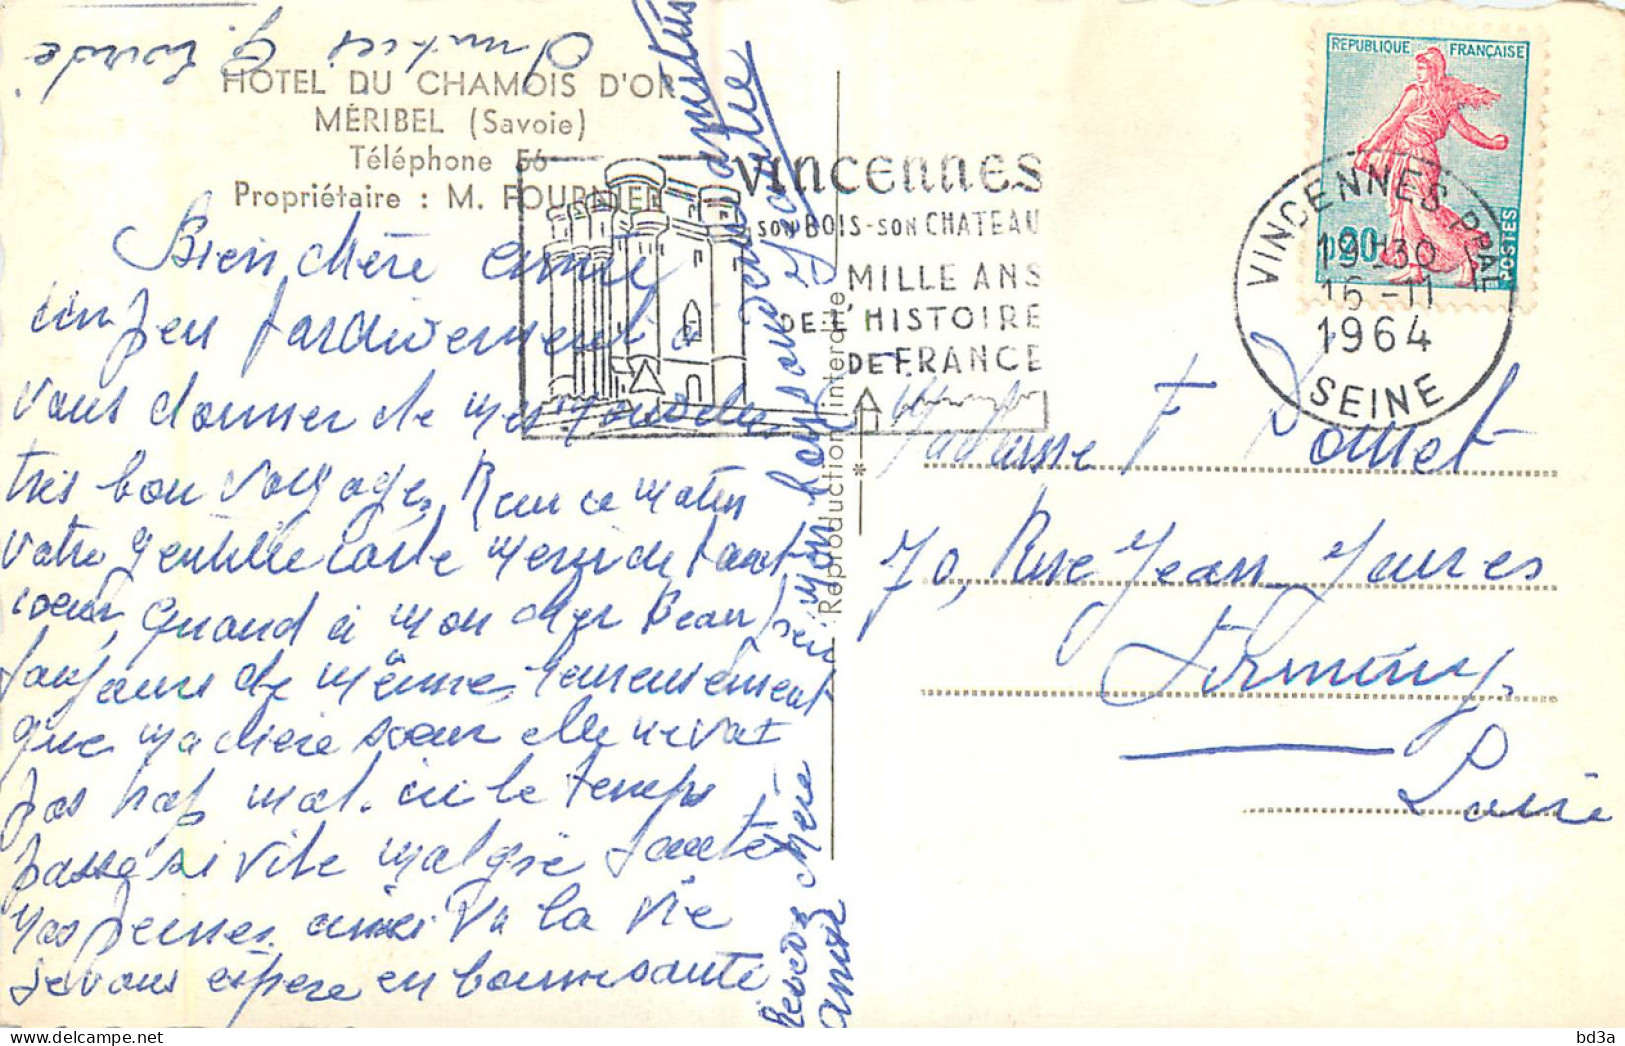 Amitiés G.
HOTEL DU CHAMOIS D'OR
MÉRIBEL (Savoie)
Téléphone 56
Propriétaire : M. FOURNIER
Bien chère amie
un peu tardivement à
vous donner de mes nouvelles
très bon voyage, Reçu ce matin
votre gentille carte merci de tout
coeur, quand à mon cher Beau
toujours de même, heureusement
que ma chère soeur elle ne va
pas trop mal. ici le temps
passe si vite malgré toutes
nos peines. ainsi va la vie
je vous espère en bonne santé
Recevez chère
amie mon bon souvenir
Reproduction interdite
VINCENNES
SON BOIS - SON CHATEAU
MILLE ANS
DE L'HISTOIRE
DE FRANCE
REPUBLIQUE FRANÇAISE
0,20
POSTES
VINCENNES PPAL
19H30
16 - 11
1964
SEINE
F
70, Rue Jean Jaures
Firminy.
Loire
bd3a